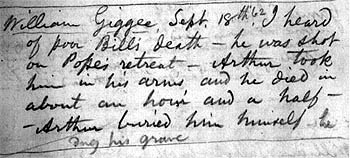 William Giggee, Sept. 18th '62 I heard
of poor Bill's death – he was shot
on Pope's retreat – Arthur took
him in his arms and he died in
about an hour and a half –
– Arthur buried him himself he
dug his grave